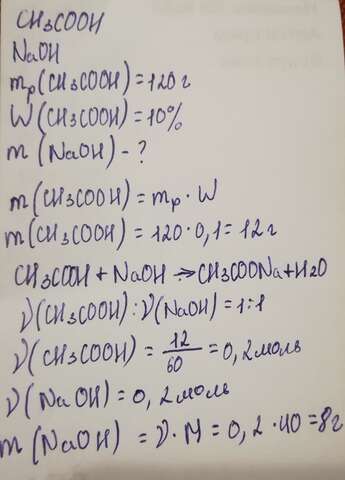 CH3COOH
NaOH
mр(CH3COOH)=120г
W(CH3COOH)=10%
m(NaOH)-?
m(CH3COOH)=mр·W
m(CH3COOH)=120·0,1=12г
CH3COOH+NaOH→CH3COONa+H2O
ν(CH3COOH):ν(NaOH)=1:1
ν(CH3COOH)=12/60=0,2моль
ν(NaOH)=0,2моль
m(NaOH)=ν·M=0,2·40=8г